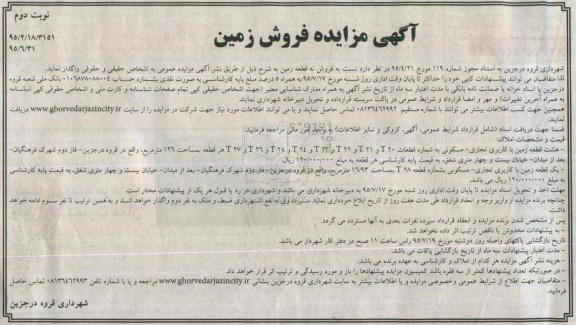 نوبت دوم
آگهی مزایده فروش زمین
۹۵/۲/۱۸/۳۱۵۱
۹۵/۶/۳۱
شهرداری قروه درجزین به استناد مجوز شماره ۱۱۹ مورخ ۹۵/۴/۲۱ در نظر دارد نسبت به فروش نه قطعه زمین به شرح ذیل از طریق نشر آگهی مزایده عمومی به اشخاص حقیقی و حقوقی واگذار نماید.
لذا متقاضیان می توانند پیشنهادات کتبی خود را حداکثر تا پایان وقت اداری روز شنبه مورخ ۹۵/۷/۱۷ به همراه ۵ درصد مبلغ پایه کارشناسی به صورت نقدی بشماره حساب ۰۱۰۶۸۷۸۰۸۸۰۰۴ بانک ملی شعبه قروه
درجزین یا اسناد خزانه یا ضمانت نامه بانکی با مدت اعتبار سه ماه از تاریخ نشر آگهی به همراه مدارک شناسایی معتبر (جهت اشخاص حقیقی کپی تمام صفحات شناسنامه و کارت ملی و اشخاص حقوقی کپی اساسنامه
به همراه آخرین تغییرات) و مهر و امضا قرارداد و شرایط عمومی در پاکت سربسته قرارداده و تحویل دبیرخانه شهرداری نمایند.
همچنین جهت کسب اطلاعات بیشتر می توانند با شماره مستقیم ۰۸۱۳۶۴۶۲۹۹۳ تماس حاصل نمایند و یا می توانند اطلاعات مورد نیاز جهت شرکت در مزایده را از سایت www.ghorvedarjazincity.ir دریافت
نمایند.
ضمنا جهت دریافت اسناد (شامل قرارداد شرایط عمومی، آگهی، کروکی و سایر اطلاعات) به واحد امور مالی مراجعه فرمایید.
قیمت و مشخصات املاک:
- هشت قطعه زمین با کاربری تجاری-مسکونی به شماره قطعات T ۲۰ و T ۲۱ و T ۲۲ و T ۲۳ و T ۲۴ و T ۲۵ و T ۲۶ و T ۲۷ هر قطعه بمساحت ۱۲۶ مترمربع، واقع در قروه درجزین- فاز دوم شهرک فرهنگیان-
بعد از میدان- خیابان بیست و چهار متری شفق، به قیمت پایه کارشناسی هر قطعه به مبلغ ۱۲۰/۰۰۰/۰۰۰ ریال
- یک قطعه زمین با کاربری تجاری- مسکونی بشماره قطعه T ۲۸ بمساحت ۱۶/۹۳ مترمربع، واقع در قروه درجزین- فاز دوم شهرک فرهنگیان- بعد از میدان- خیابان بیست و چهار متری شفق، به قیمت پایه کارشناسی
به مبلغ ۱۲۰/۰۰۰/۰۰۰ ریال می باشد.
مهلت اخذ و تحویل اسناد مزایده تا پایان وقت اداری روز شنبه مورخ ۹۵/۷/۱۷ به دبیرخانه شهرداری می باشد و شهرداری در رد یا قبول هر یک از پیشنهادات مختار است.
چنانچه برنده مزایده از واریز وجه و انعقاد قرارداد طی مدت هفت روز از تاریخ ابلاغ خودداری نماید سپرده وی به نفع شهرداری ضبط، و ملک به نفر دوم واگذار خواهد شد و به همین ترتیب تا نفر سوم ادامه خواهد
داشت.
پس از مشخص شدن برنده مزایده و انعقاد قرارداد سپرده نفرات بعدی به آنها مسترد می گردد.
- به پیشنهادات مخدوش یا ناقص ترتیب اثر داده نخواهد شد.
تاریخ بازگشایی پاکتهای واصله روز دوشنبه مورخ ۹۵/۷/۱۹ راس ساعت ۱۱ صبح در دفتر کار شهردار می باشد.
- مدت اعتبار پیشنهادات سه ماه از تاریخ بازگشایی پاکات می باشد.
- هزینه نشر آگهی مزایده هر کدام از املاک و کارشناسی به عهده برنده می باشد.
- در صورتیکه تعداد پیشنهادها کمتر از سه فقره باشد کمیسیون مزایده پیشنهادها را باز و مورد رسیدگی و ترتیب اثر قرار خواهد داد
- متقاضیان جهت اطلاع از شرایط عمومی وخصوصی مزایده و یا اطلاعات بیشتر به سایت شهرداری قروه درجزین بنشانی www.ghorvedarjazincity.ir مراجعه و یا با شماره تلفن ۰۸۱۳۶۴۶۲۹۹۳ تماس حاصل
فرمایید.
شهرداری قروه درجزین